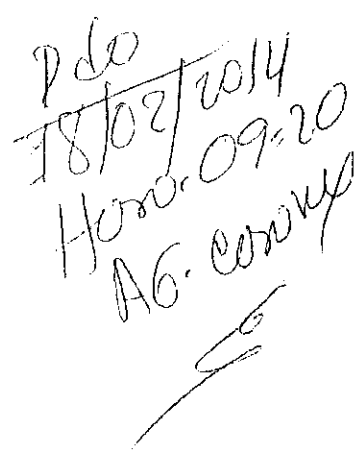 Pdo
18/02/2014
Hora. 09:20
AG.